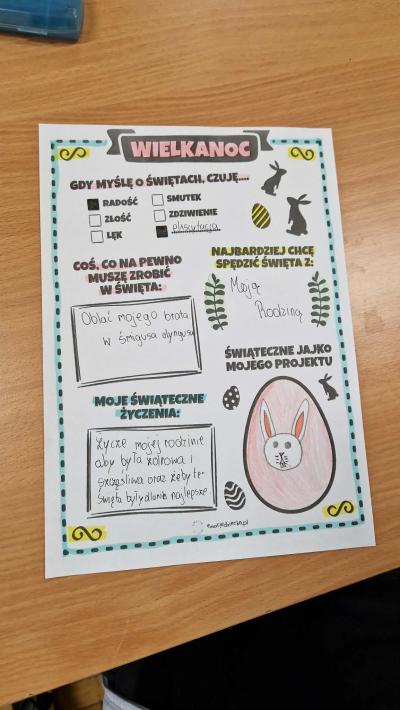 WIELKANOC
GDY MYŚLĘ O ŚWIĘTACH, CZUJĘ....
RADOŚĆ
SMUTEK
ZŁOŚĆ
ZDZIWIENIE
LĘK
COŚ, CO NA PEWNO
MUSZĘ ZROBIĆ
W ŚWIĘTA:
Oblać mojego brata
w śmigusa dyngusa
NAJBARDZIEJ CHCĘ
SPĘDZIĆ ŚWIĘTA Z:
Moją
Rodziną
MOJE ŚWIĄTECZNE
ŻYCZENIA:
Życze mojej rodzinie
aby była zdrowa i
szczęśliwa oraz żeby te
święta były dla nich najlepsze
ŚWIĄTECZNE JAJKO
MOJEGO PROJEKTU